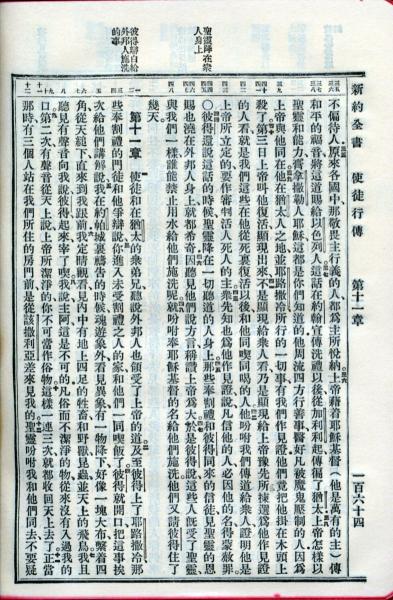 新約全書　使徒行傳　第十一章　一百六十四
不偏待人原來各國中那敬畏主行義的人都爲主所悅納上帝藉着耶穌基督（他是萬有的主）傳
和平的福音將這道賜給以色列人這話在約翰宣傳洗禮以後從加利利起傳徧了猶太上帝怎樣以
聖靈和能力膏拿撒勒人耶穌這都是你們知道的他周流四方行善事醫好凡被魔鬼壓制的人因爲
上帝與他同在他在猶太人之地並耶路撒冷所行的一切事有我們作見證他們竟把他掛在木頭上
殺了第三日上帝叫他復活顯現出來不是顯現給衆人看乃是顯現給上帝豫先所揀選爲他作見證
的人看就是我們這些在他從死裏復活以後和他同喫同喝的人他吩咐我們傳道給衆人證明他是
上帝所立定的要作審判活人死人的主衆先知也爲他作見證說凡信他的人必因他的名得蒙赦罪
聖靈降在衆
人身上
〇彼得還說這話的時候聖靈降在一切聽道的人身上那些奉割禮和彼得同來的信徒見聖靈的恩
賜也澆在外邦人身上就都希奇因聽見他們說方言稱讚上帝爲大於是彼得說這些人旣受了聖靈
與我們一樣誰能禁止用水給他們施洗呢就吩咐奉耶穌基督的名給他們施洗他們又請彼得住了
幾天
彼得辯白給
外邦人施洗
的事
第十一章　使徒和在猶太的衆弟兄聽說外邦人也領受了上帝的道及至彼得上了耶路撒冷那
些奉割禮的門徒和他爭辯說你進入未受割禮之人的家和他們一同喫飯了彼得就開口把這事挨
次給他們講解說我在約帕城裏禱告的時候魂遊象外看見異象有一物降下好像一塊大布繫着四
角從天縋下直來到我跟前我定睛觀看見內中有地上四足的牲畜和野獸昆蟲並天上的飛鳥我且
聽見有聲音向我說彼得起來宰了喫我說主阿這是不可的凡俗而不潔淨的物從來沒有入過我的
口第二次有聲音從天上說上帝所潔淨的你不可當作俗物這樣一連三次就都收回天上去了正當
那時有三個人站在我們所住的房門前是從該撒利亞差來見我的聖靈吩咐我和他們同去不要疑